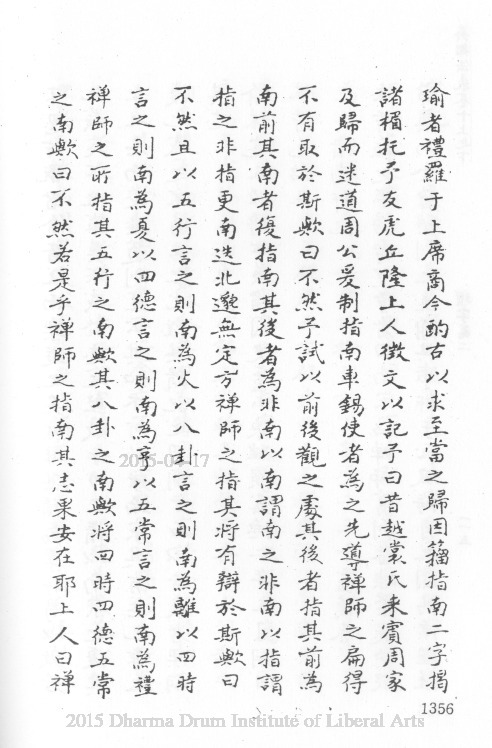 瑜者禮羅于上席商今酌古以求至當之歸因籀指南二字揭
諸楣托予友虎丘隆上人徵文以記予曰昔越裳氏來賓周家
及歸而迷道周公爰制指南車錫使者為之先導禪師之扁得
不有取於斯歟曰不然予試以前後觀之處其後者指其前為
南前其南者復指南其後者為非南以南謂南之非南以指謂
指之非指更南迭北邈無定方禪師之指其將有辯於斯歟曰
不然且以五行言之則南為火以八卦言之則南為離以四時
言之則南為夏以四德言之則南為亨以五常言之則南為禮
禪師之所指其五行之南歟其八卦之南歟將四時四德五常
之南歟曰不然若是乎禪師之指南其志果安在耶上人曰禪
2015-04-17
1356
2015 Dharma Drum Institute of Liberal Arts